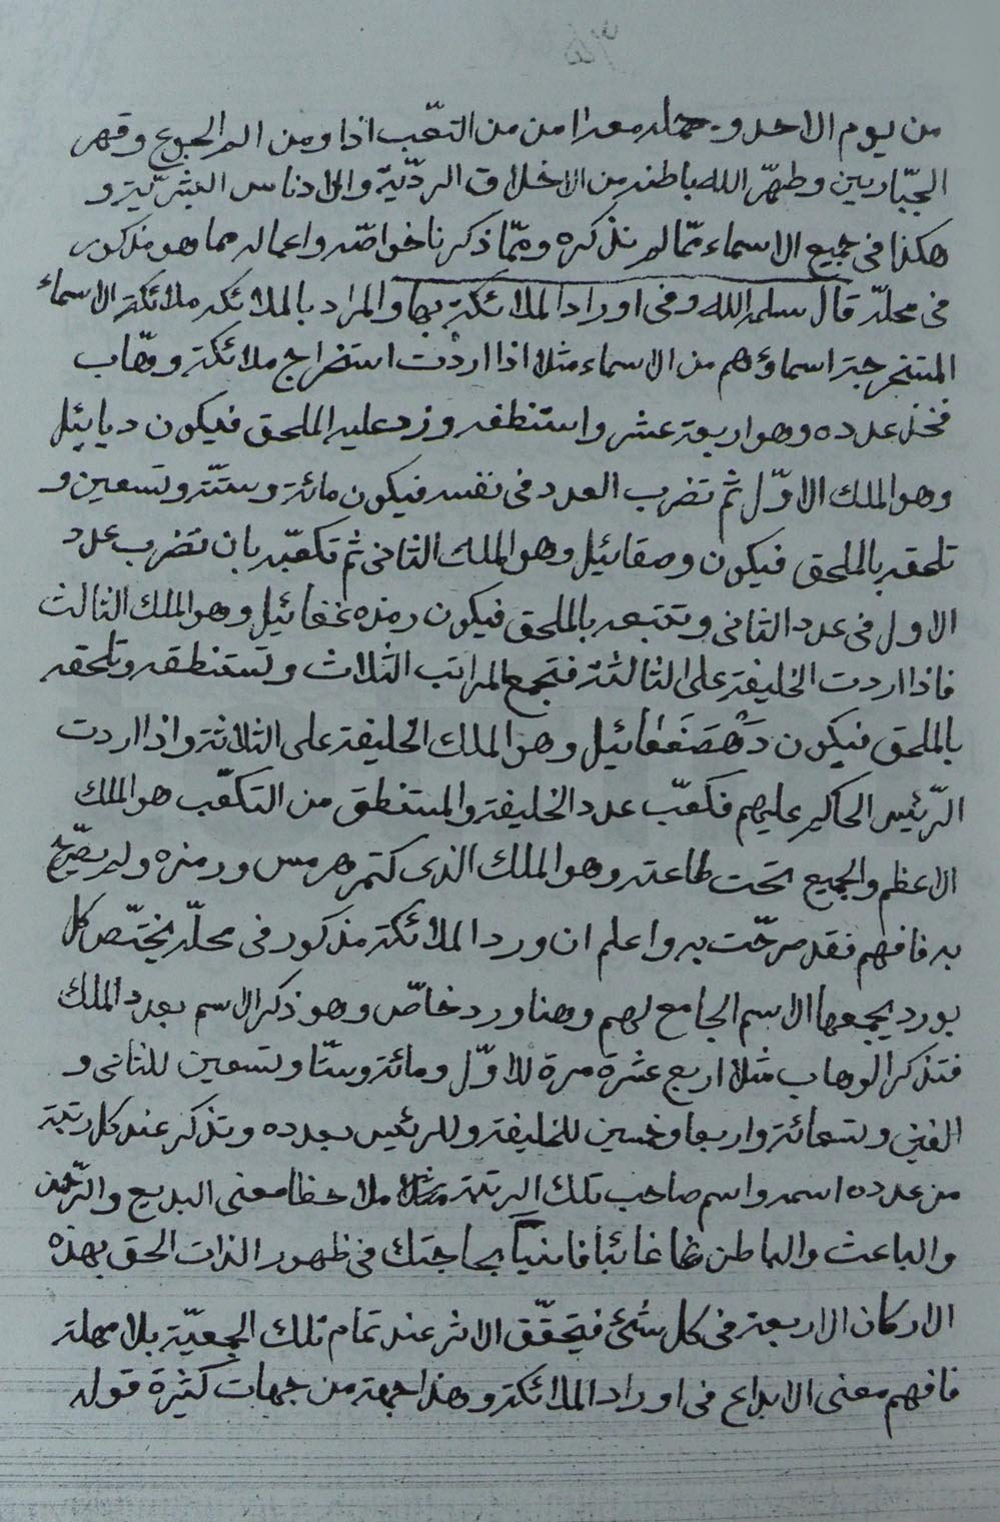 من يوم الاحد و حمله معه امن من التعب اذا ومن الم الجوع وقهر
الجبّاريين وطهّر الله باطنه من الاخلاق الرديّة والادناس البشريّة و
هكذا فى جميع الاسماء ممّا لم نذكره وممّا ذكرنا خواصّه واعماله مما هو مذكور
فى محلّه قال سلمه الله وفى اوراد الملائكة بها والمراد بالملائكه ملائكة الاسماء
المستخرجة اسماؤهم من الاسماء مثلا اذا اردت استخراج ملائكة وهّاب
فخذ عدده وهو اربعة عشر واستنطقه وزد عليه الملحق فيكون ديايئيل
وهو الملك الاوّل ثم تضرب العدد فى نفسه فيكون مائة وستّة وتسعين و
تلحقه بالملحق فيكون وصقائيل وهو الملك الثانى ثم تكعّبه بان تضرب عدد
الاول فى عدد الثانى وتتبعه بالملحق فيكون دمذه غغائيل وهو الملك الثالث
فاذا اردت الخليفة على الثالثة فتجمع المراتب الثلاث وتستنطقه وتلحقه
بالملحق فيكون دنهصغغائيل وهو الملك الخليفة على الثلاثة واذا اردت
الرّئيس الحاكم عليهم فكعّب عدد الخليفة والمستنطق من التكعّب هو الملك
الاعظم والجميع تحت طاعته وهو الملك الذى كتمه هرمس ورمزه ولم يصرّح
به فافهم فقد صرّحت به واعلم ان ورد الملائكة مذكور فى محلّه يختصّ كل
بورد يجمعها الاسم الجامع لهم وهنا ورد خاصّ وهو ذكر الاسم بعدد الملك
فتذكر الوهاب مثلا اربع عشرة مرة للاوّل ومائة وستّا وتسعين للثانى و
الفين وتسعمائة واربعا وخمسين للخليفة وللرئيس بعدده وتذكر عند كل رتبة
من عدده اسمه واسم صاحب تلك الرتبة ملاحظا معنى البديع والرّحمن
والباعث والباطن غائبا فانيا بحاجتك فى ظهور الذات الحق بهذه
الاركان الاربعة فى كل شئ فيتحقّق الاثر عند تمام تلك الجمعيّة بلا مهلة
فافهم معنى الابداع فى اوراد الملائكة وهذا جهة من جهات كثيرة قوله